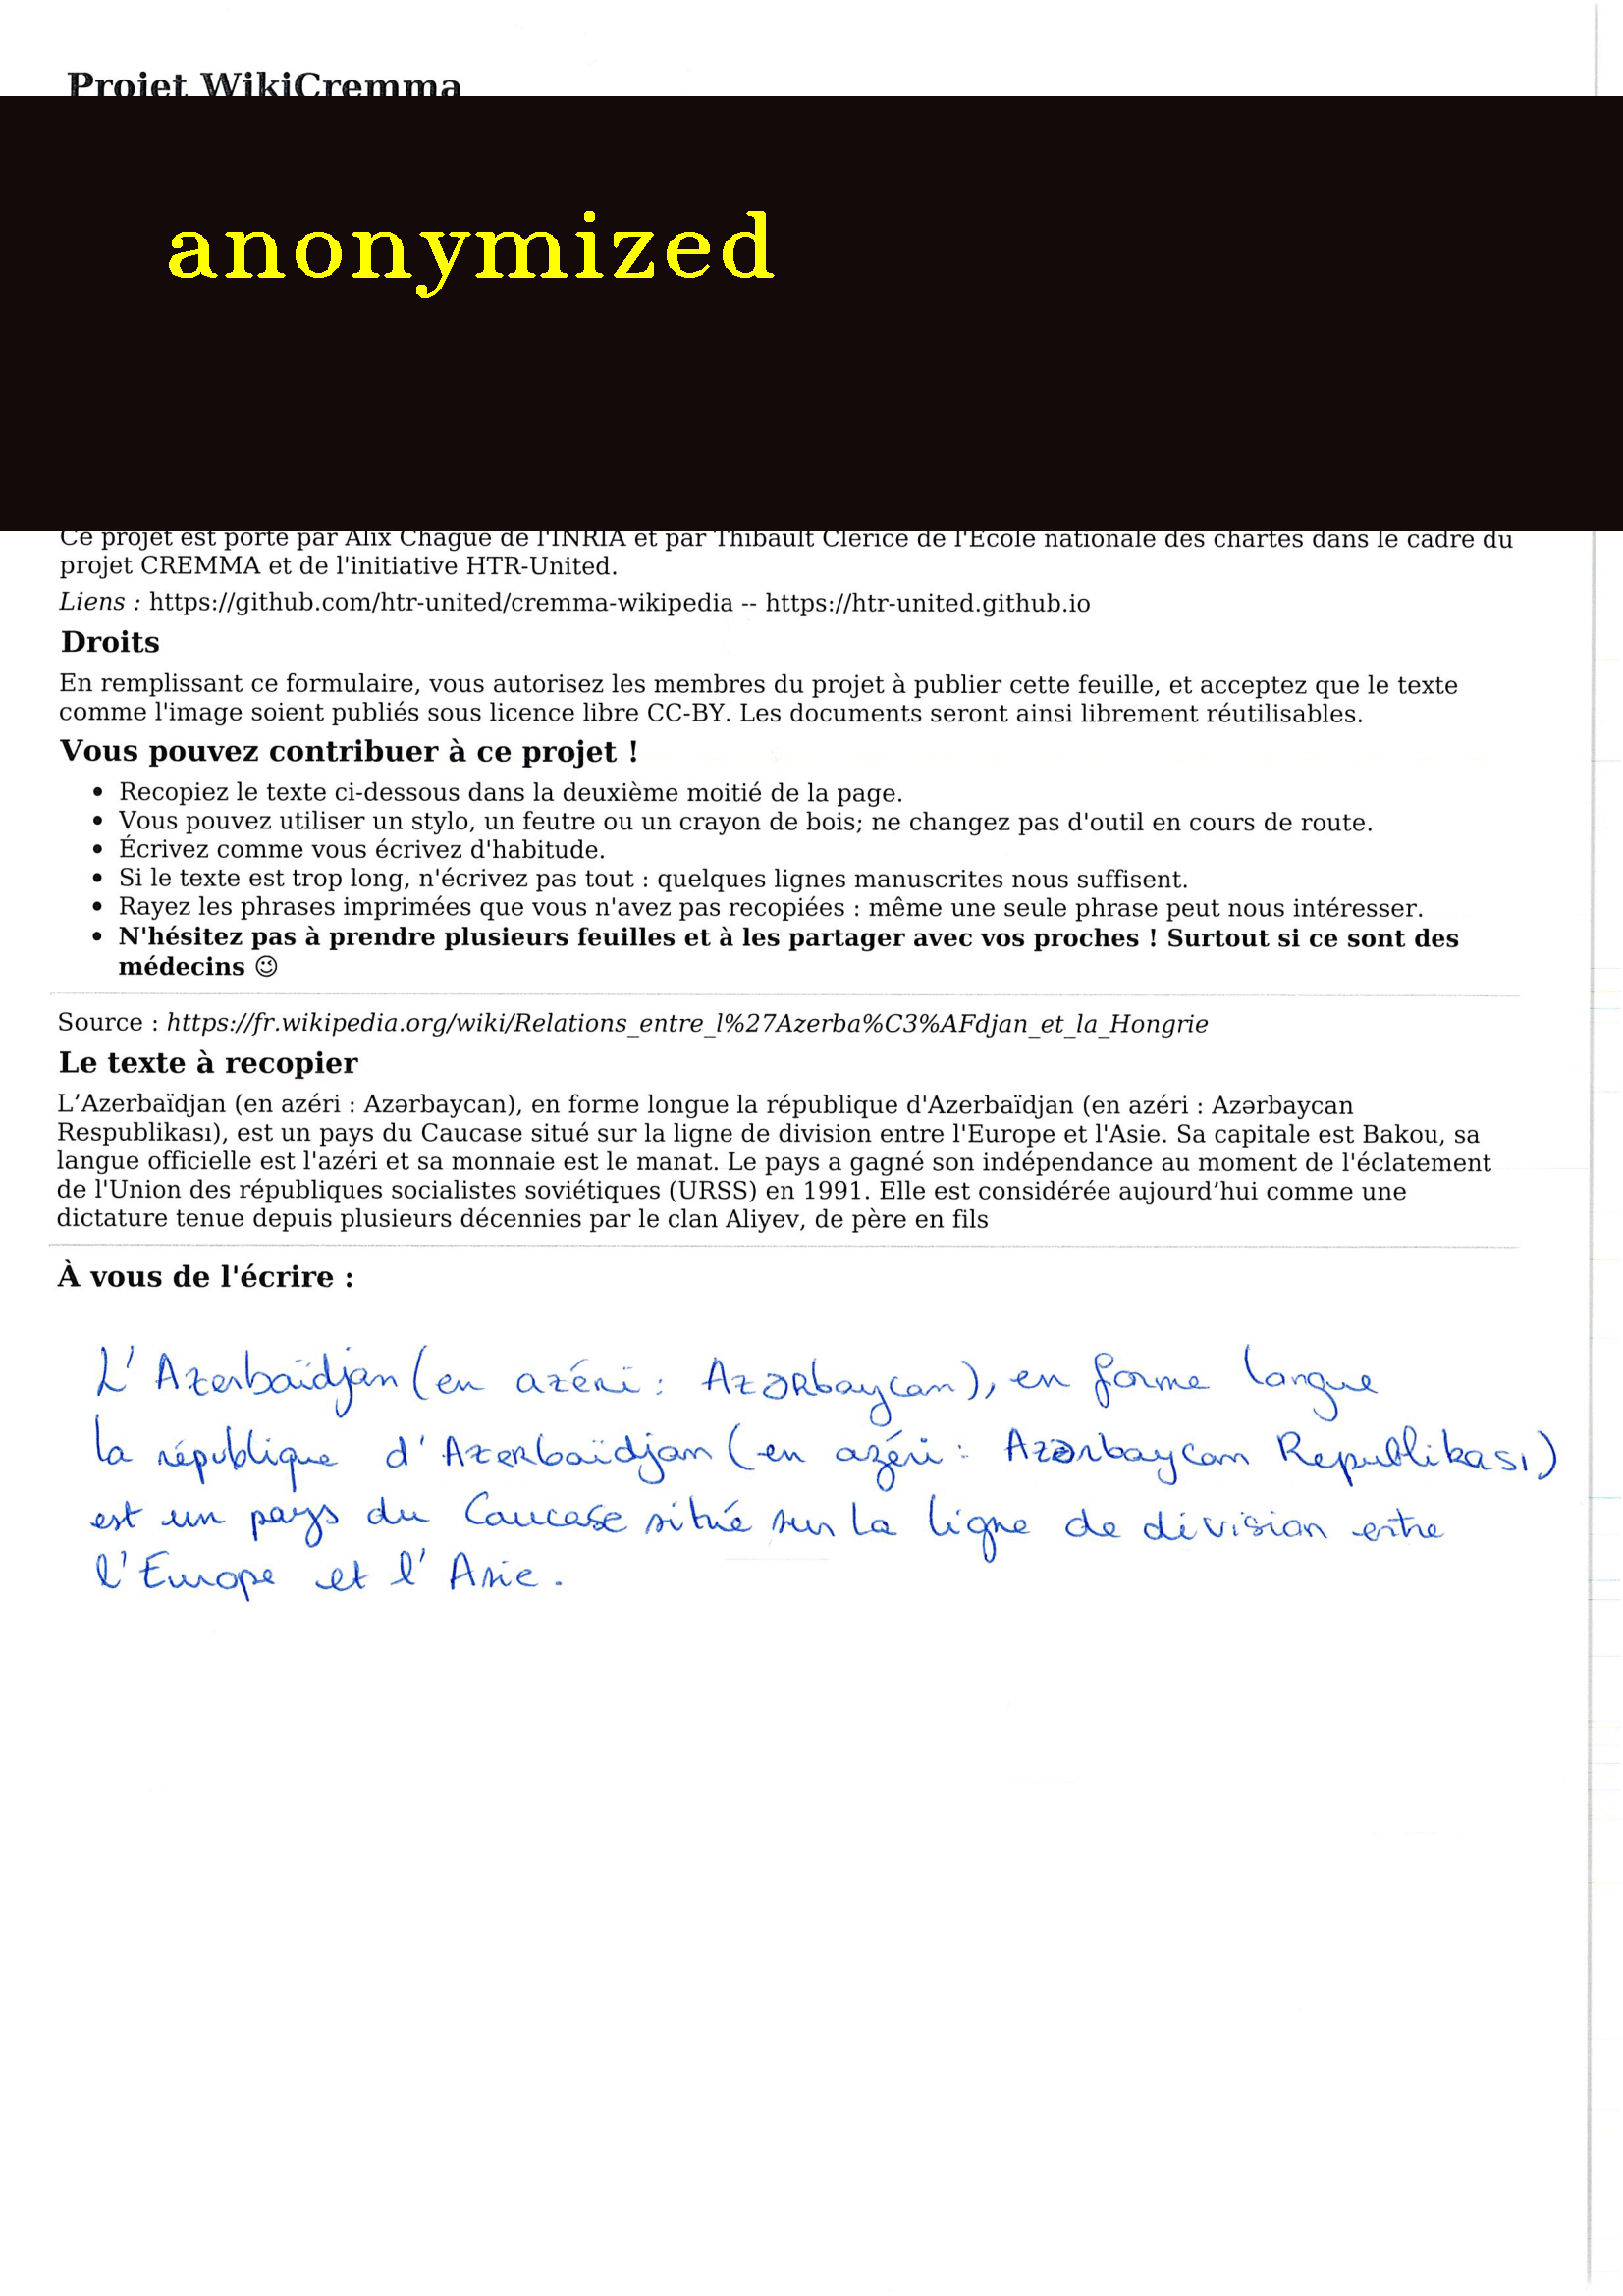 Projet WikiCremma
anonymized
Ce projet est porté par Alix Chagué de l'INRIA et par Thibault Clérice de l'École nationale des chartes dans le cadre du
projet CREMMA et de l'initiative HTR-United.
Liens : https://github.com/htr-united/cremma-wikipedia -- https://htr-united.github.io
Droits
En remplissant ce formulaire, vous autorisez les membres du projet à publier cette feuille, et acceptez que le texte
comme l'image soient publiés sous licence libre CC-BY. Les documents seront ainsi librement réutilisables.
Vous pouvez contribuer à ce projet !
• Recopiez le texte ci-dessous dans la deuxième moitié de la page.
• Vous pouvez utiliser un stylo, un feutre ou un crayon de bois; ne changez pas d'outil en cours de route.
• Écrivez comme vous écrivez d'habitude.
• Si le texte est trop long, n'écrivez pas tout : quelques lignes manuscrites nous suffisent.
• Rayez les phrases imprimées que vous n'avez pas recopiées : même une seule phrase peut nous intéresser.
• N'hésitez pas à prendre plusieurs feuilles et à les partager avec vos proches ! Surtout si ce sont des
médecins 😉
Source : https://fr.wikipedia.org/wiki/Relations_entre_l%27Azerba%C3%AFdjan_et_la_Hongrie
Le texte à recopier
L’Azerbaïdjan (en azéri : Azərbaycan), en forme longue la république d'Azerbaïdjan (en azéri : Azərbaycan
Respublikası), est un pays du Caucase situé sur la ligne de division entre l'Europe et l'Asie. Sa capitale est Bakou, sa
langue officielle est l'azéri et sa monnaie est le manat. Le pays a gagné son indépendance au moment de l'éclatement
de l'Union des républiques socialistes soviétiques (URSS) en 1991. Elle est considérée aujourd’hui comme une
dictature tenue depuis plusieurs décennies par le clan Aliyev, de père en fils
À vous de l'écrire :
L'Azerbaïdjan (en azéri : Azərbaycan), en forme longue
la république d'Azerbaïdjan (en azéri : Azərbaycan Republikası)
est un pays du Caucase situé sur la ligne de division entre
l'Europe et l'Asie.